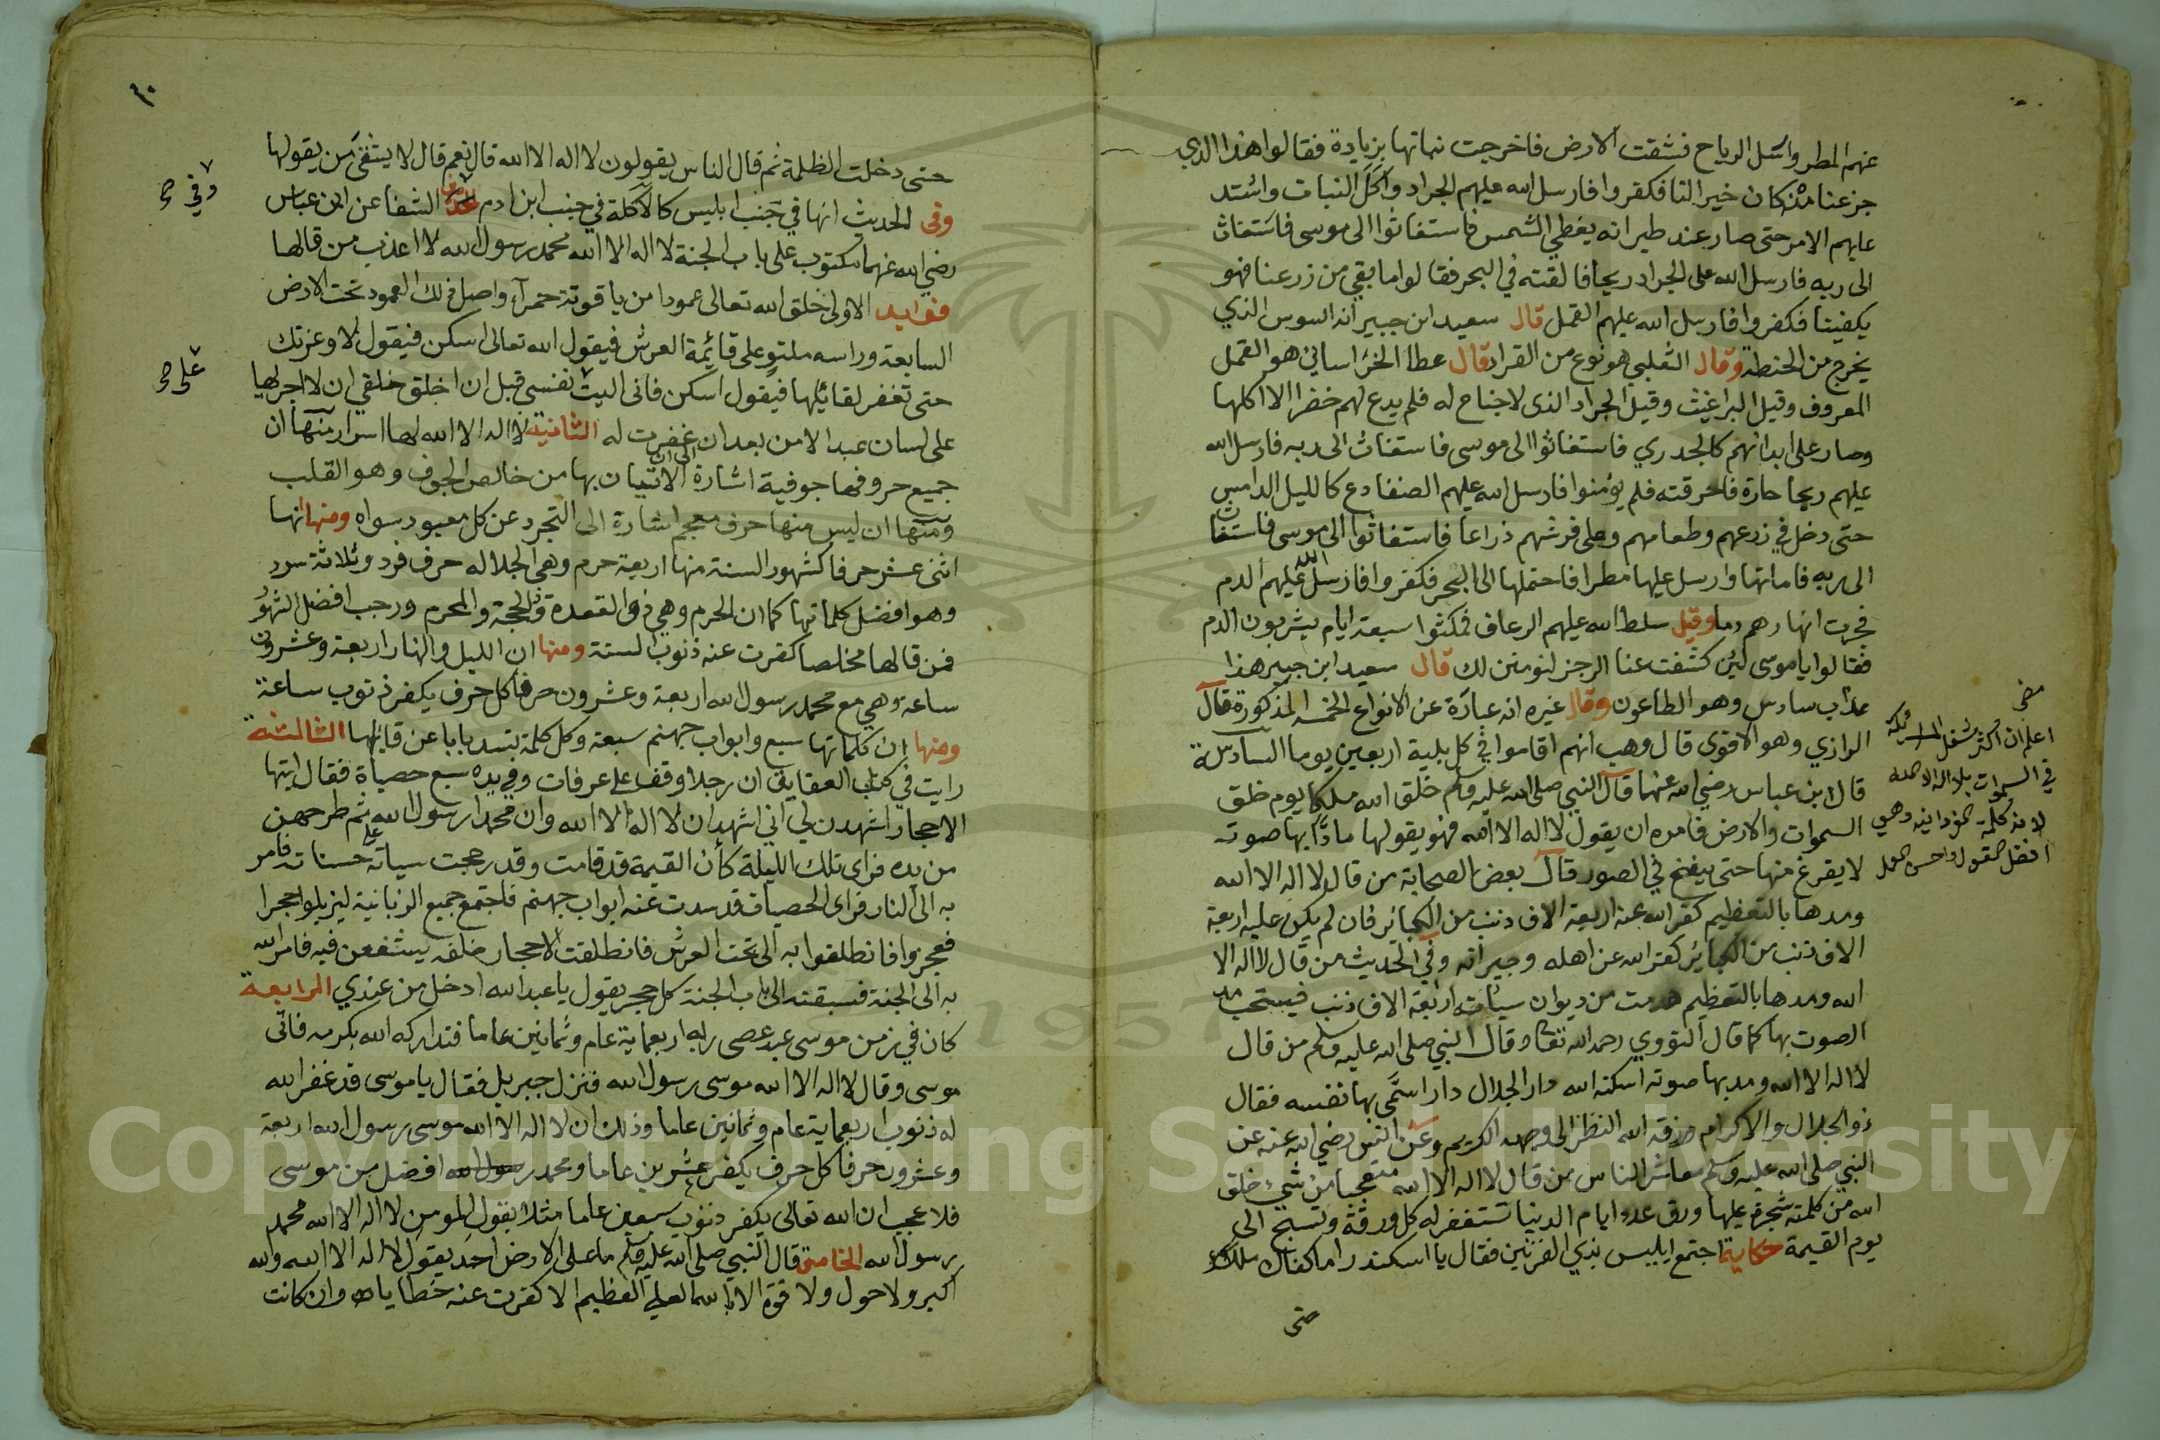 عنهم المطر وارسل الرياح فنشفت الارض فاخرجت نباتها بزيادة فقالوا هذا الذي
جزعنا منه كان خيرا لنا فكفروا فارسل الله عليهم الجراد واكل النبات واشتد
عليهم الامر حتى صار عند طيرانه يغطي الشمس فاستغاثوا الى موسى فاستغاث
الى ربه فارسل الله على الجراد ريحا فالقته في البحر فقالوا ما بقي من زرعنا فهو
يكفينا فكفروا فارسل الله عليهم القمل قال سعيد ابن جبير انه السوس الذي
يخرج من الحنطة وقال الثعلبي هو نوع من القراد قال عطا الخراساني هو القمل
المعروف وقيل البراغيث وقيل الجراد الذي لا جناح له فلم يدع لهم خضرا الا اكلها
وصار على ابدانهم كالجدري فاستغاثوا الى موسى فاستغاث الى ربه فارسل الله
عليهم ريحا حارة فاحرقته فلم يؤمنوا فارسل الله عليهم الضفادع كالليل الدامس
حتى دخل في زرعهم وطعامهم وعلى فرشهم ذراعا فاستغاثوا الى موسى فاستغاث
الى ربه فاماتها وارسل عليها مطرا فاحتملها الى البحر فكفروا فارسل الله عليهم الدم
فجرت انهارهم دما وقيل سلط الله عليهم الرعاف فمكثوا سبعة ايام يشربون الدم
فقالوا يا موسى لئن كشفت عنا الرجز لنومنن لك قال سعيد ابن جبير هذا
عذاب سادس وهو الطاعون وقال غيره انه عبارة عن الانواع الخمسة المذكورة قال
الرازي وهو الاقوى قال وهب انهم اقاموا في كل بلية اربعين يوما السادسة
قال ابن عباس رضي الله عنهما قال النبي صلى الله عليه وسلم خلق الله ملكا يوم خلق
السموات والارض فامره ان يقول لا اله الا الله فهو يقولها مادا بها صوته
لا يفرغ منها حتى ينفخ في الصور قال بعض الصحابة من قال لا اله الا الله
ومدها بالتعظيم كفر الله عنه اربعة الاف ذنب من الكبائر فان لم يكن عليه اربعة
الاف ذنب من الكبائر كفر الله عن اهله وجيرانه وفي الحديث من قال لا اله الا
الله ومدها بالتعظيم هدمت من ديوان سيئاته اربعة الاف ذنب فيستحب مد
الصوت بها كما قال النووي رحمه الله تعالى وقال النبي صلى الله عليه وسلم من قال
لا اله الا الله ومد بها صوته اسكنه الله دار الجلال دارا سمى بها نفسه فقال
ذو الجلال والاكرام ورزقه الله النظر الى وجهه الكريم وعن انس رضي الله عنه عن
النبي صلى الله عليه وسلم معاشر الناس من قال لا اله الا الله متعجبا من شيء خلق
الله من كلمته شجرة عليها ورق عدد ايام الدنيا تستغفر له كل ورقة وتسبح الى
يوم القيمة حكاية اجتمع ابليس بذي القرنين فقال يا اسكندر اما كفاك ملكك
حتى
اعلم ان اكثر شغل الملائكة
في السموات بلا اله الا الله
لانه كلمة وهي
افضل القول واحسن العمل
٤٠
حتى دخلت الظلمة ثم قال الناس يقولون لا اله الا الله قال نعم قال لا يشقى من يقولها
وفي الحديث انها في جنب ابليس كالآكلة في جنب ابن ادم الشفا عن ابن عباس
رضي الله عنهما مكتوب على باب الجنة لا اله الا الله محمد رسول الله لا اعذب من قالها
فوايد الاولى خلق الله تعالى عمودا من ياقوتة حمرآء واصل ذلك العمود تحت الارض
السابعة وراسه ملتو على قائمة العرش فيقول الله تعالى اسكن فيقول لا وعزتك
حتى تغفر لقائلها فيقول اسكن فاني اليت نفسي قبل ان اخلق خلقي ان لا اجريها
على لسان عبد الا من بعد ان غفرت له الثانية لا اله الا الله لها اسرار منها ان
جميع حروفها جوفية اشارة الى ان الاتيان بها من خالص الجوف وهو القلب
ومنها ان ليس منها حرف معجم اشارة الى التجرد عن كل معبود سواه ومنها انها
اثنى عشر حرفا كشهور السنة منها اربعة حرم وهي الجلاله حرف فرد وثلاثة سرد
وهو افضل كلماتها كما ان الحرم وهي ذو القعدة وذو الحجة والمحرم ورجب افضل الشهور
فمن قالها مخلصا كفرت عنه ذنوب السنة ومنها ان الليل والنهار اربعة وعشرون
ساعة وهي مع محمد رسول الله اربعة وعشرون حرفا كل حرف يكفر ذنوب ساعة
ومنها ان كلماتها سبع وابواب جهنم سبعة وكل كلمة تسد بابا عن قائلها الثالثة
رايت في كتاب العقايق ان رجلا وقف على عرفات وفي يده سبع حصياة فقال ايتها
الاحجار اشهدن لي اني اشهد ان لا اله الا الله وان محمدا رسول الله ثم طرحهن
من يده فراى تلك الليلة كأن القيمة قد قامت وقد رجحت سياته على حسناته فامر
به الى النار فراى الحصيات قد سدت عنه ابواب جهنم فاجتمع جميع الزبانية ليزيلوا حجرا
فعجزوا فانطلقوا به الى تحت العرش فانطلقت الاحجار خلفه يستشفعن فيه فامر الله
به الى الجنة فسبقته الى باب الجنة كل حجر يقول يا عبد الله ادخل من عندي الرابعة
كان في زمن موسى عبد عصى ربه اربعماية عام وثمانين عاما فتداركه الله بكرمه فاتى
موسى وقال لا اله الا الله موسى رسول الله فنزل جبريل فقال يا موسى قد غفر الله
له ذنوب اربعماية عام وثمانين عاما وذلك ان لا اله الا الله موسى رسول الله اربعة
وعشرون حرفا كل حرف يكفر عشرين عاما ومحمد رسول الله افضل من موسى
فلا عجب ان الله تعالى يكفر ذنوب سبعين عاما مثلا بقول المومن لا اله الا الله محمد
رسول الله الخامسة قال النبي صلى الله عليه وسلم ما على الارض احد يقول لا اله الا الله والله
اكبر ولا حول ولا قوة الا بالله العلي العظيم الا كفرت عنه خطاياه وان كانت
وفي صح
على صح
Copyright © King Saud University
1957